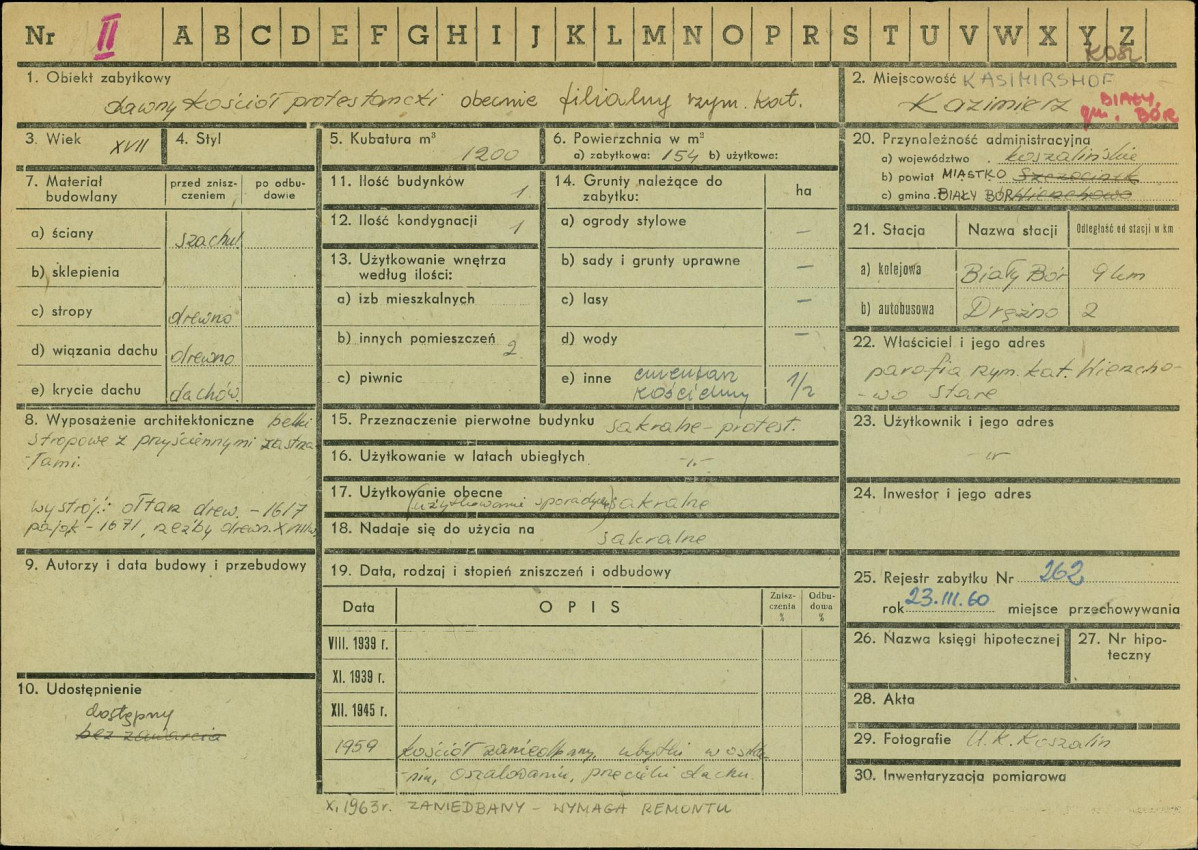 Nr II A B C D E F G H I J K L M N O P R S T U V W X Y Z
KOSZ.
1. Obiekt zabytkowy
dawny kościół protestancki obecnie filialny rzym. kat.
2. Miejscowość KASIMIRSHOF
Kazimierz
gm. BIAŁY BÓR
3. Wiek XVII
4. Styl
5. Kubatura m³ 1200
6. Powierzchnia w m²
a) zabytkowa: 154 b) użytkowa:
7. Materiał budowlany
przed zniszczeniem
po odbudowie
a) ściany szachul
b) sklepienia
c) stropy drewno
d) wiązania dachu drewno
e) krycie dachu dachów.
8. Wyposażenie architektoniczne belki
stropowe z przyściennymi zastrza-
-łami.
wystrój: ołtarz drew. - 1617
pająk - 1671, rzeźby drewn. XVIII w.
9. Autorzy i data budowy i przebudowy
10. Udostępnienie
dostępny
bez zawarcia
11. Ilość budynków 1.
12. Ilość kondygnacji 1
13. Użytkowanie wnętrza
według ilości:
a) izb mieszkalnych
b) innych pomieszczeń 2
c) piwnic
14. Grunty należące do
zabytku:
ha
a) ogrody stylowe –
b) sady i grunty uprawne –
c) lasy –
d) wody –
e) inne cmentarz
kościelny 1/2
15. Przeznaczenie pierwotne budynku sakralne-protest.
16. Użytkowanie w latach ubiegłych -„-
17. Użytkowanie obecne (użytkowanie sporadyczne) sakralne
18. Nadaje się do użycia na sakralne
19. Data, rodzaj i stopień zniszczeń i odbudowy
Data OPIS Zniszczenia % Odbudowa %
VIII. 1939 r.
XI. 1939 r.
XII. 1945 r.
1959 kościół zaniedbany, ubytki w oszkle-
-niu, oszalowaniu, przecieki dachu.
X. 1963 r. ZANIEDBANY - WYMAGA REMONTU
20. Przynależność administracyjna
a) województwo koszalińskie
b) powiat MIASTKO Szczecinek
c) gmina BIAŁY BÓR Wierzchowo
21. Stacja Nazwa stacji Odległość od stacji w km
a) kolejowa Biały Bór 9 km
b) autobusowa Drężno 2
22. Właściciel i jego adres
parafia rzym. kat. Wierzcho-
-wo Stare
23. Użytkownik i jego adres
-„-
24. Inwestor i jego adres
25. Rejestr zabytku Nr 262
rok 23.III.60 miejsce przechowywania
26. Nazwa księgi hipotecznej
27. Nr hipoteczny
28. Akta
29. Fotografie U.K. Koszalin
30. Inwentaryzacja pomiarowa